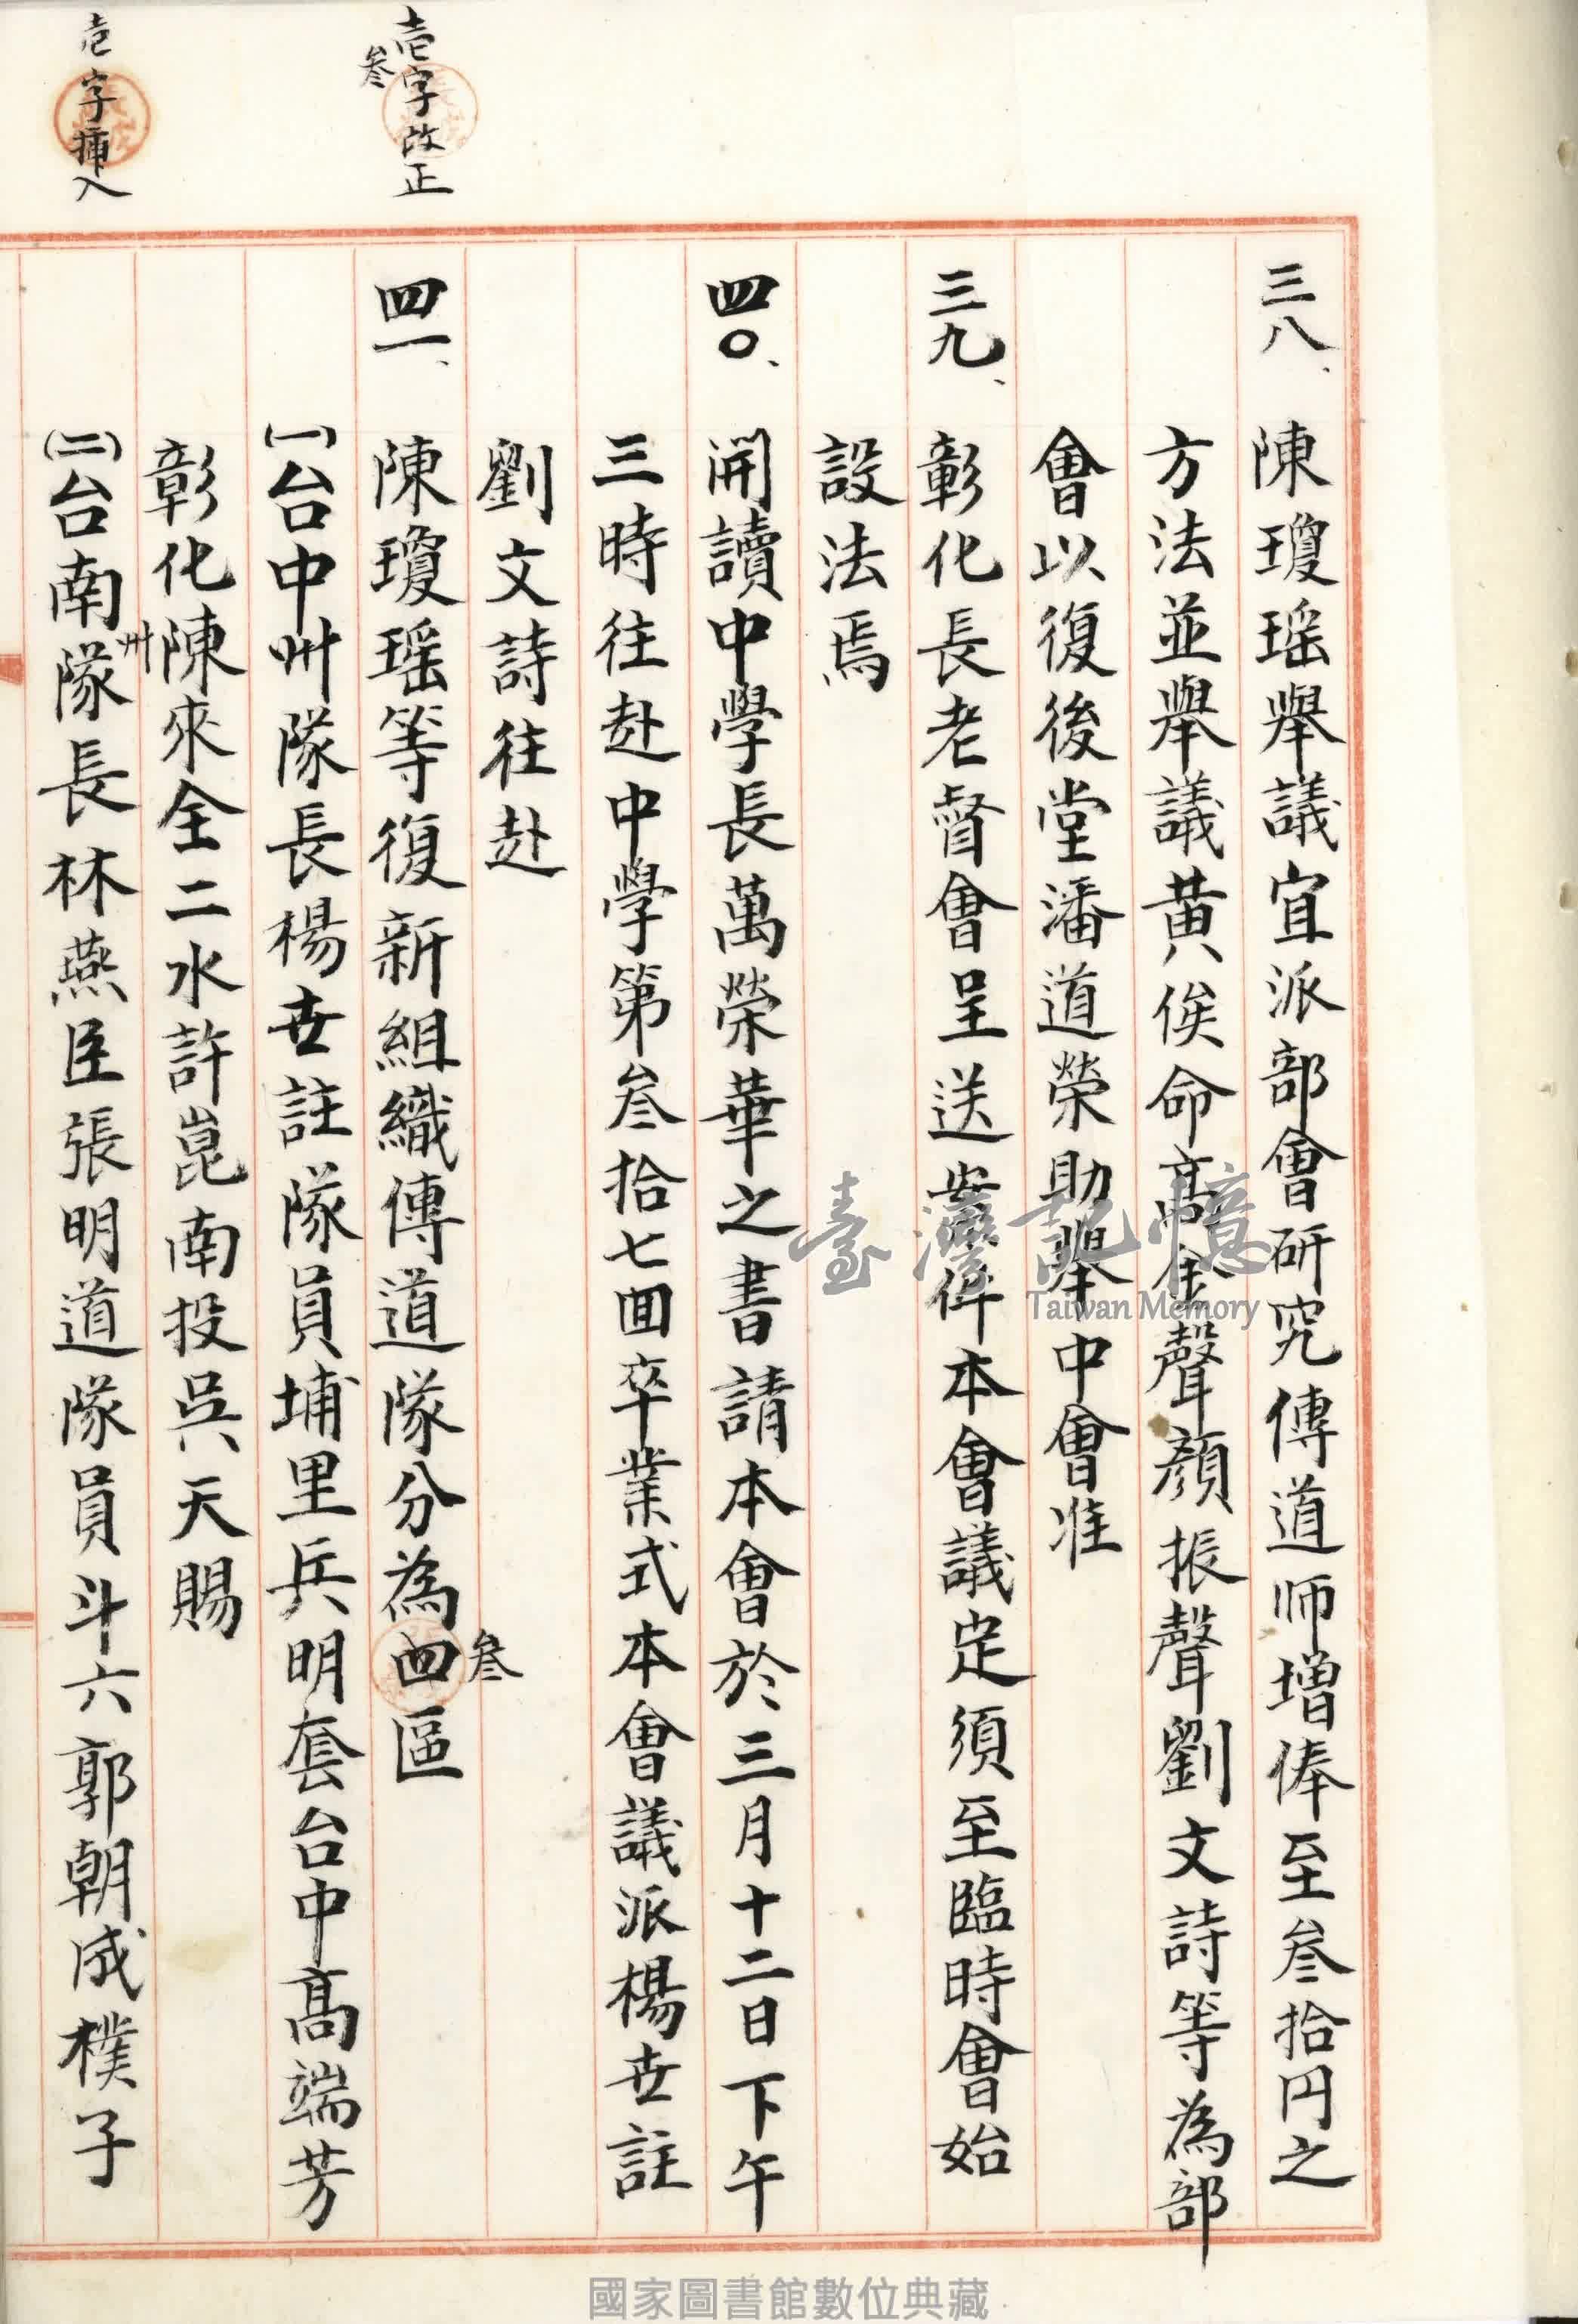 壱字改正
叁
壱字揷入
三八、陳瓊瑶舉議宜派部會研究傳道师增俸至叁拾円之
方法並舉議黄俟命髙金聲顏振聲劉文詩等為部
會以復後堂潘道榮助舉中會准
三九、彰化長老督會呈送 本會議定須至臨時會始
設法焉
四〇、開讀中學長萬榮華之書請本會於三月十二日下午
三時往赴中學第叁拾七囬卒業式本會議派楊世註
劉文詩往赴
四一、陳瓊瑶等復新組織傳道隊分為四區
叁
(一)台中州隊長楊世註隊員埔里兵明套台中髙端芳
彰化陳來全二水許崑南投吳天賜
州
(二)台南隊長林燕臣張明道隊員斗六郭朝成樸子
臺灣記憶
Taiwan Memory
國家圖書館數位典藏